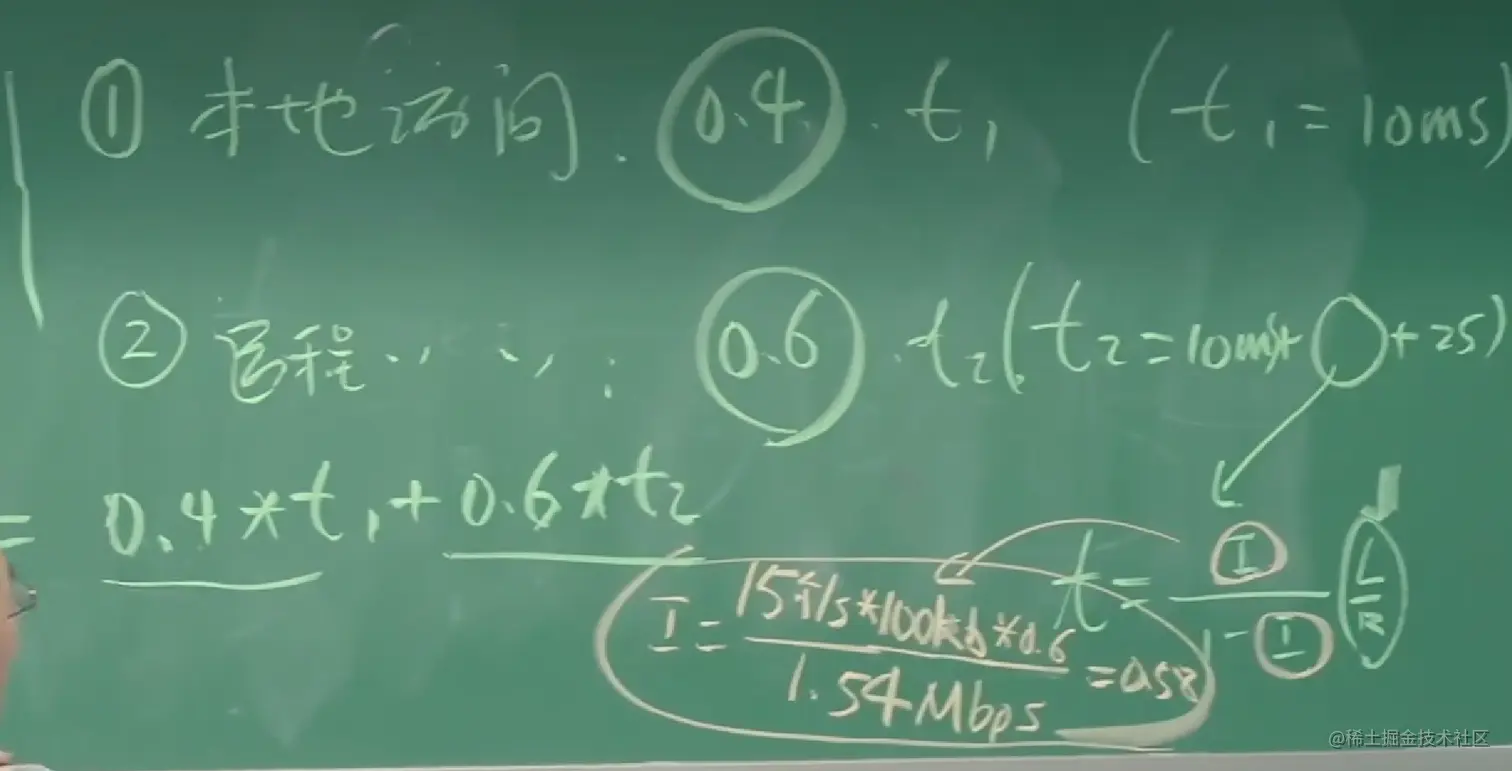 ① 本地访问: 0.4 · t₁ (t₁=10ms)
② 远程 ‥ ‥ : 0.6 · t₂ (t₂=10ms+ ○ +2s)
= 0.4*t₁+0.6*t₂
t = I/(1-I) L/R
I = 15个/s*100kb*0.6/1.54Mbps = 0.58
@稀土掘金技术社区